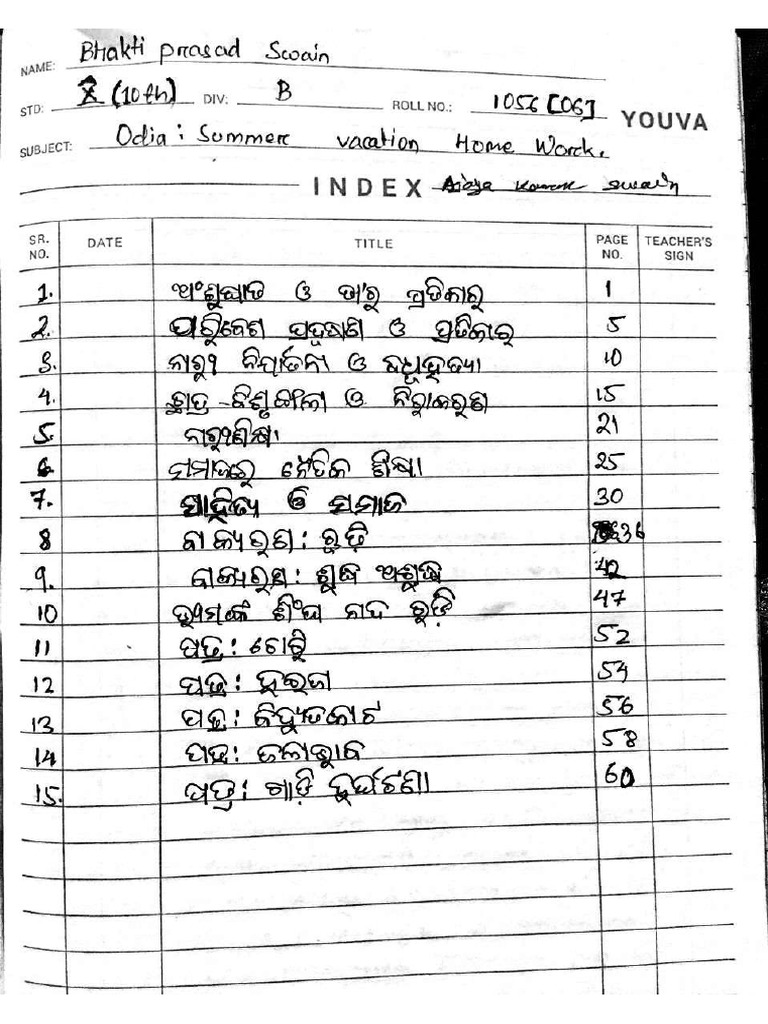 NAME: Bhakti Prasad Swain
STD: X (10th) DIV: B ROLL NO.: 1056 [06] YOUVA
SUBJECT: Odia : Summer vacation Home Worck.
INDEX swain
SR. NO. DATE TITLE PAGE NO. TEACHER'S SIGN
1. ଅଂଶୁଘାତ ଓ ତା'ର ପ୍ରତିକାର 1
2. ପରିବେଶ ପ୍ରଦୂଷଣ ଓ ପ୍ରତିକାର 5
3. ନାରୀ ନିର୍ଯାତନା ଓ ବଧୂହତ୍ୟା 10
4. ଛାତ୍ର ବିଶୃଙ୍ଖଳା ଓ ନିରାକରଣ 15
5. ନାରୀଶିକ୍ଷା 21
6 ସମାଜରେ ନୈତିକ ଶିକ୍ଷା 25
7. ସାହିତ୍ୟ ଓ ସମାଜ 30
8 ବ୍ୟାକରଣ : ରୂଢ଼ି 36
9. ବ୍ୟାକରଣ : ଶୁଦ୍ଧ ଅଶୁଦ୍ଧ 42
10 ରୂଢ଼ି 47
11 ପତ୍ର : ଚୋରି 52
12 ପତ୍ର : ହଇଜା 54
13 ପତ୍ର : ବିଦ୍ୟୁତକାଟ 56
14 ପତ୍ର : 58
15. ପତ୍ର : ଗାଡ଼ି ଦୁର୍ଘଟଣା 60